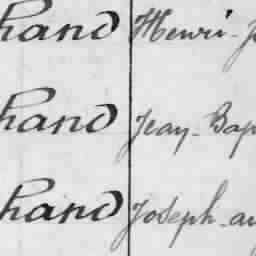 hand Henri-J
hand Jean-Bap
hand Joseph-au